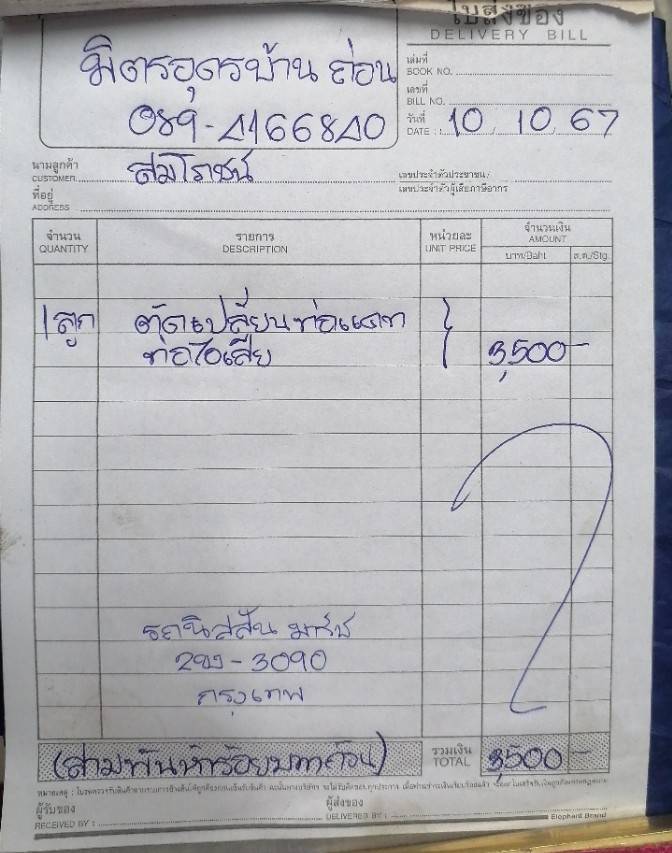 ใบส่งของ
DELIVERY BILL
มิตรอุดรบ้านถ่อน
089-4166840
เล่มที่
BOOK NO.
เลขที่
BILL NO.
วันที่
DATE : 10 10 67
นามลูกค้า
CUSTOMER สมโภชน์
เลขประจำตัวประชาชน/
เลขประจำตัวผู้เสียภาษีอากร
ที่อยู่
ADDRESS
จำนวน รายการ หน่วยละ จำนวนเงิน
QUANTITY DESCRIPTION UNIT PRICE AMOUNT
บาท/Baht ส.ต./Stg.
1 ลูก ตัดเปลี่ยนท่อแคท
ท่อไอเสีย 3,500-
รถนิสสัน มาร์ช
3090
กรุงเทพ
(สามพันห้าร้อยบาทถ้วน) รวมเงิน
TOTAL 3,500-
ผู้รับของ ผู้ส่งของ
RECEIVED BY : DELIVERED BY : Elephant Brand